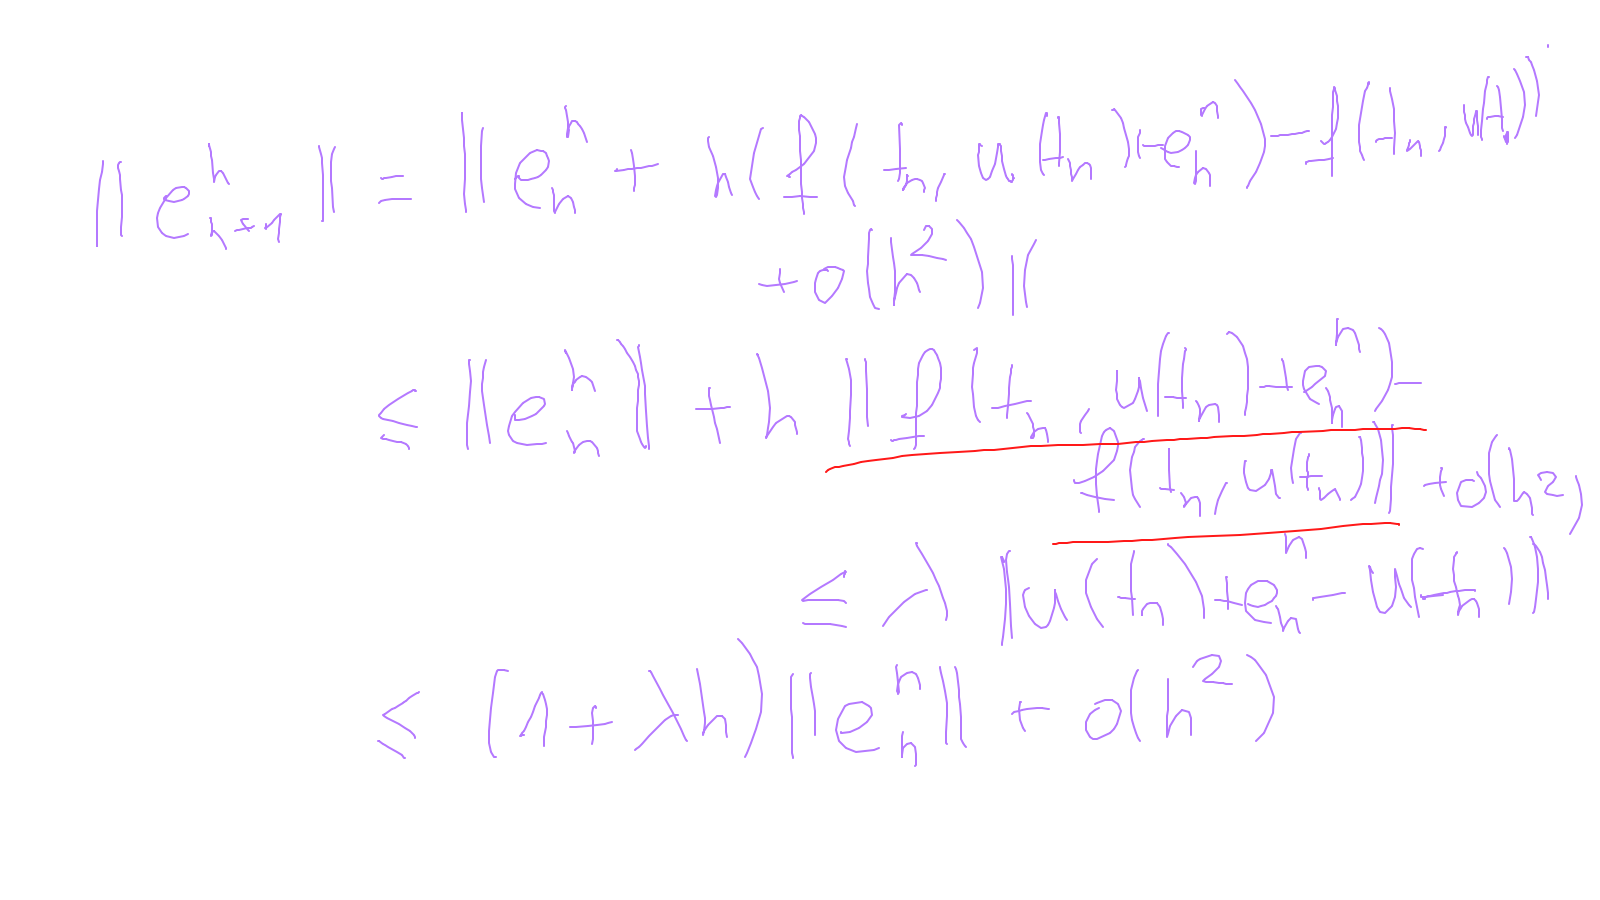 ‖e_{n+1}^h‖ = ‖e_n^h + h(f(t_n, u(t_n)+e_n^h) - f(t_n, u(t_n)))
+ O(h^2)‖
≤ ‖e_n^h‖ + h ‖f(t_n, u(t_n)+e_n^h) -
f(t_n, u(t_n))‖ + O(h^2)
≤ λ ‖u(t_n)+e_n^h - u(t_n)‖
≤ (1+λh)‖e_n^h‖ + O(h^2)